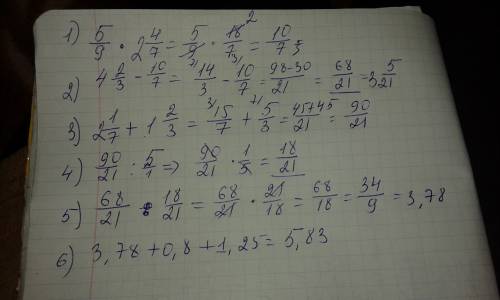 1) 5/9 · 2 4/7 = 5/9 · 18/7 = 10/7 2
2) 4 2/3 - 10/7 = 14/3 - 10/7 = 98-30/21 = 68/21 = 3 5/21
3) 2 1/7 + 1 2/3 = 15/7 + 5/3 = 45+45/21 = 90/21
4) 90/21 : 5/1 => 90/21 · 1/5 = 18/21
5) 68/21 : 18/21 = 68/21 · 21/18 = 68/18 = 34/9 = 3,78
6) 3,78 + 0,8 + 1,25 = 5,83